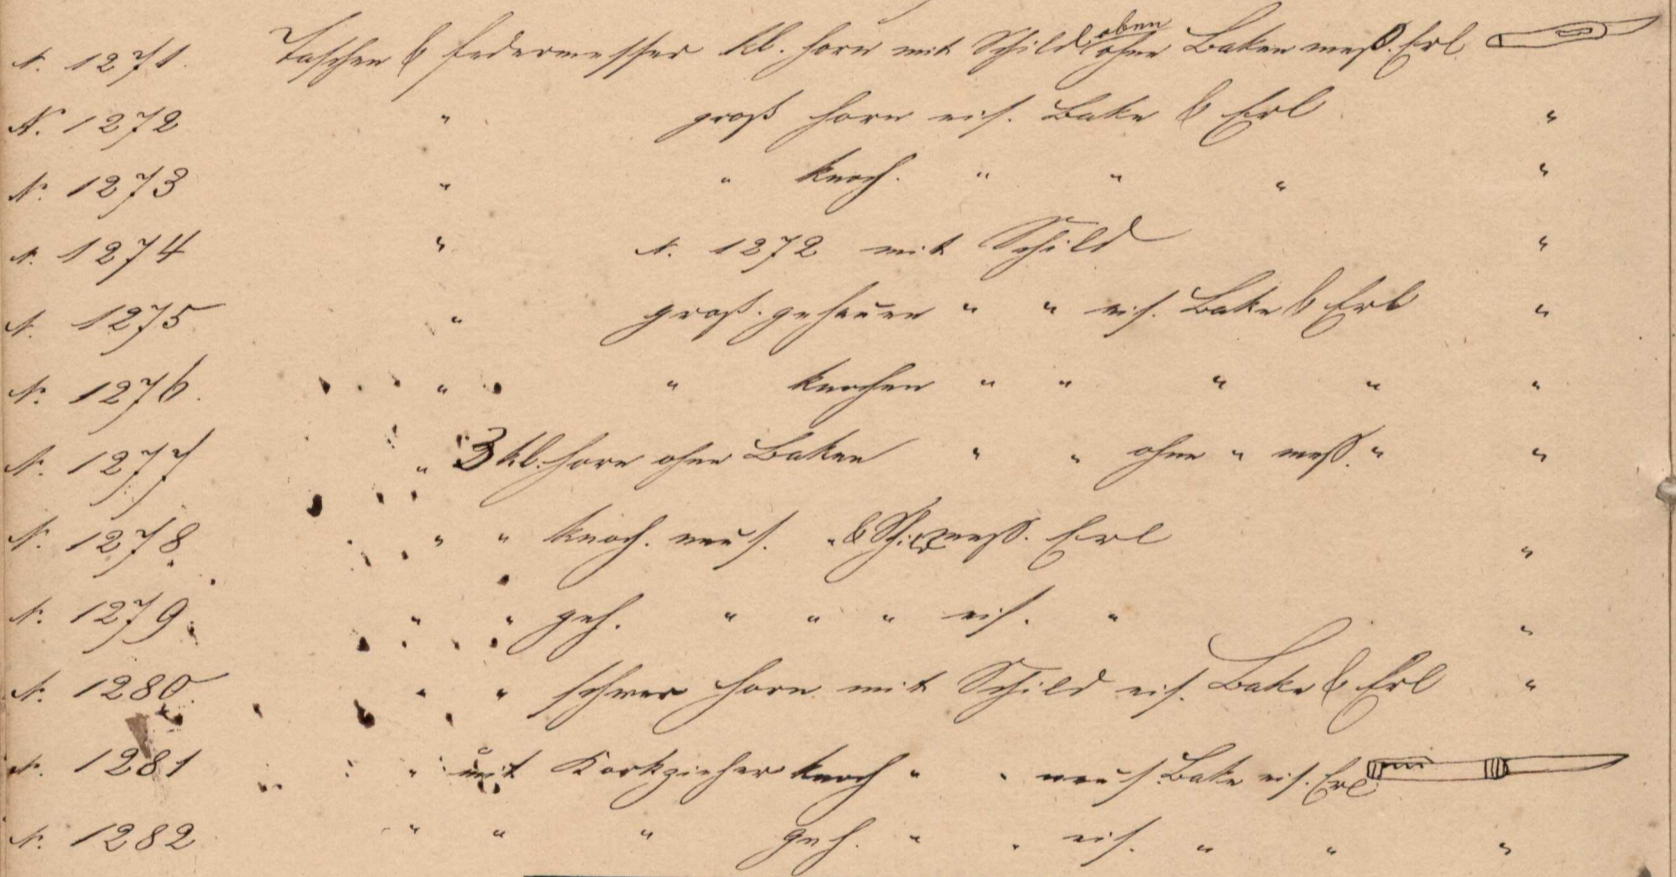 N. 1271. Taschen & Federmesser kl. Horn mit Schild oben ohne Baken mess. Erl
N. 1272 " groß Horn eis. Bake & Erl "
N. 1273 " " Knoch. " " " "
N. 1274 " N. 1272 mit Schild "
N. 1275 " groß. " " eis. Bake & Erl "
N. 1276. " " Knochen " " " " "
N. 1277 " 3 kl. Horn ohne Baken " " ohne " mess. " "
N. 1278 " " Knoch. neus. " & Schild mess. Erl "
N. 1279 " " geh. " " " eis. " "
N. 1280 " " schwer Horn mit Schild eis. Bake & Erl "
N. 1281 " mit Korkzieher Knoch " " neus. Bake eis. Erl
N. 1282 " " " geh. " " eis. " " "